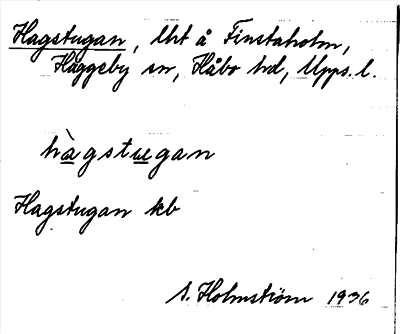 Hagstugan, lht å Finstaholm,
Häggeby sn, Håbo hd, Upps. l.
hàgstugan
Hagstugan kb
S. Holmström 1936